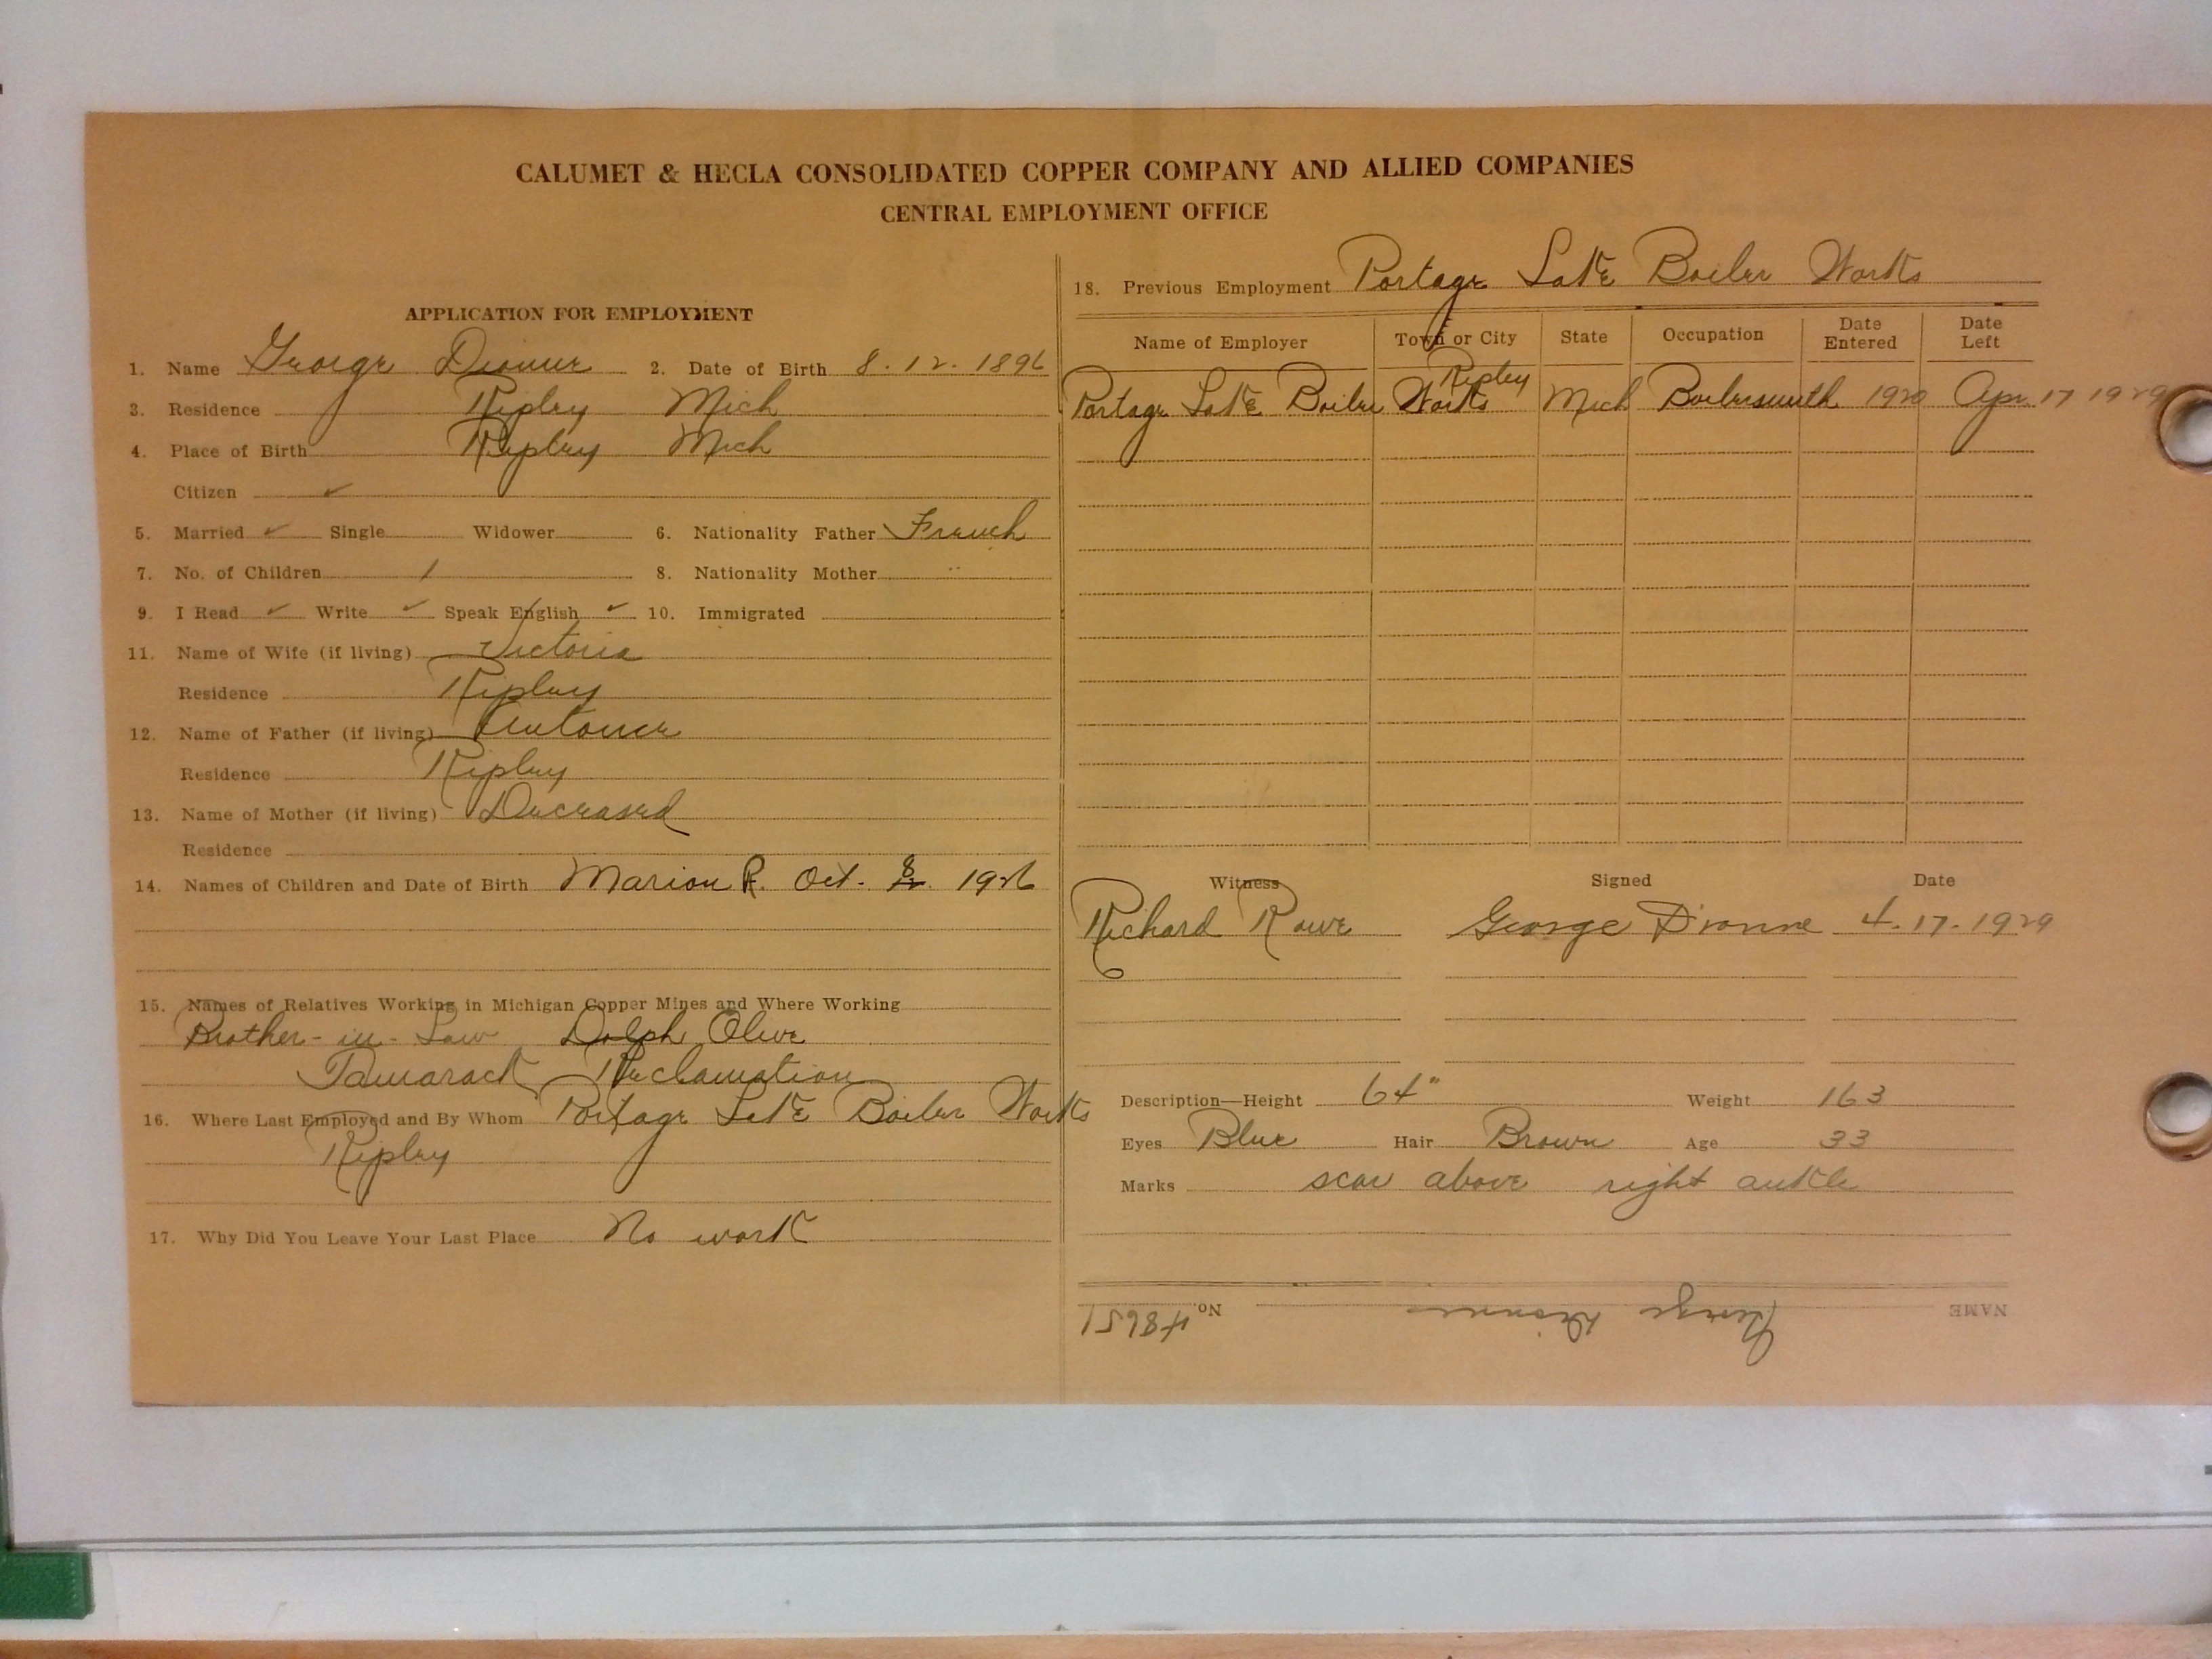 CALUMET & HECLA CONSOLIDATED COPPER COMPANY AND ALLIED COMPANIES
CENTRAL EMPLOYMENT OFFICE
APPLICATION FOR EMPLOYMENT
1. Name George Dionne 2. Date of Birth 8.12.1896
3. Residence Ripley Mich
4. Place of Birth Ripley Mich
Citizen ✓
5. Married ✓ Single Widower 6. Nationality Father French
7. No. of Children 1 8. Nationality Mother "
9. I Read ✓ Write ✓ Speak English ✓ 10. Immigrated
11. Name of Wife (if living) Victoria
Residence Ripley
12. Name of Father (if living)
Residence Ripley
13. Name of Mother (if living) Deceased
Residence
14. Names of Children and Date of Birth Marion R. Oct. 8 1926
15. Names of Relatives Working in Michigan Copper Mines and Where Working
Brother-in-Law Dolph Olive
Tamarack Reclamation
16. Where Last Employed and By Whom Portage Lake Boiler Works
Ripley
17. Why Did You Leave Your Last Place No work
18. Previous Employment Portage Lake Boiler Works
Name of Employer Town or City State Occupation Date Entered Date Left
Ripley
Portage Lake Boiler Works Mich Boilersmith 1920 Apr 17 1929
Witness Signed Date
Richard Rowe George Dionne 4.17.1929
Description—Height 64" Weight 163
Eyes Blue Hair Brown Age 33
Marks scar above right ankle
NAME George Dionne No. 48651